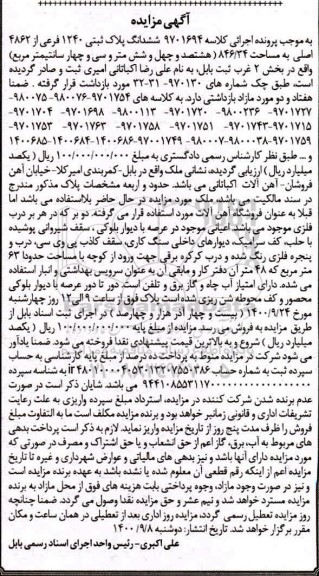 آگهی مزایده
به موجب پرونده اجرائی کلاسه ۹۷۰۱۶۹۴ ششدانگ پلاک ثبتی ۱۲۴۰ فرعی از ۴۸۶۲
اصلی به مساحت ۸۴۶/۳۴ ( هشتصد و چهل و شش متر و سی و چهار سانتیمتر مربع)
واقع در بخش ۲ غرب ثبت بابل، به نام علی رضا اکباتانی امیری ثبت و صادر گردیده
است، طبق چک شماره های ۹۷۰۱۳۰-۳۱-۳۲ مورد بازداشت قرار گرفته . ضمنا
هفتاد و دو مورد مازاد بازداشتی دارد. به کلاسه های ۹۷۰۱۷۵۴-۹۸۰۰۷۶-۹۸۰۰۷۵-
۹۷۰۱۷۳۷-۹۸۰۰۲۳۶-۹۷۰۱۷۲۰-۹۸۰۰۱۱۳-۹۷۰۱۶۹۸-۹۷۰۱۷۰۴-
۹۷۰۱۷۱۵-۹۷۰۱۷۴۳-۹۷۰۱۷۵۱-۹۷۰۱۷۵۸-۹۷۰۱۷۶۳-۹۷۰۱۷۵۳-
۹۷۰۱۷۵۹-۹۸۰۰۰۳۸-۹۸۰۰۰۷-۹۷۰۱۷۴۹-۱۴۰۰۶۸۶-۱۴۰۰۶۸۴-۱۴۰۰۶۸۵
و ... طبق نظر کارشناس رسمی دادگستری به مبلغ ۱۰۰/۰۰۰/۰۰۰/۰۰۰ ریال ( یکصد
میلیارد ریال ) ارزیابی گردیده، نشانی ملک واقع در بابل-کمربندی امیرکلا-خیابان آهن
فروشان- آهن آلات اکباتانی می باشد. حدود و اربعه مشخصات پلاک مذکور مندرج
در سند مالکیت می باشد. ملک مورد مزایده در حال حاضر بلااستفاده می باشد اما
قبلا به عنوان فروشگاه آهن آلات مورد استفاده قرار می گرفته. دو بر که در هر بر درب
فلزی موجود می باشد. اعیانی موجود در عرصه با دیوار بلوکی، سقف شیروانی پوشیده
با حلب، کف سرامیک، دیوارهای داخلی سنگ کاری، سقف کاذب پی وی سی، درب و
پنجره فلزی رنگ شده و درب کرکره برقی جهت ورود از کوچه با مساحت حدودا ۶۳
متر مربع که ۴۸ متر آن دفتر کار و مابقی آن به عنوان سرویس بهداشتی و انبار استفاده
می شده. دارای امتیاز آب چاه و گاز برق و تلفن است. دور تا دور عرصه با دیوار بلوکی
محصور و کف محوطه شن ریزی شده است پلاک فوق از ساعت ۹ الی ۱۲ روز چهارشنبه
مورخ ۱۴۰۰/۹/۲۴ ( بیست و چهار آذر هزار و چهارصد ) در اجرای ثبت اسناد بابل از
طریق مزایده به فروش می رسد. مزایده از مبلغ پایه ۱۰۰/۰۰۰/۰۰۰/۰۰۰ ریال ( یکصد
میلیارد ریال ) شروع و به بالاترین قیمت پیشنهادی نقدا فروخته می شود. ضمنا یادآور
می شود شرکت در مزایده منوط به پرداخت ده درصد از مبلغ پایه کارشناسی به حساب
سپرده ثبت به شماره حساب به شناسه سپرده
می باشد. شایان ذکر است در صورت
عدم برنده شدن شرکت کننده در مزایده، استرداد مبلغ سپرده واریزی به علت رعایت
تشریفات اداری و قانونی زمانبر خواهد بود و برنده مزایده مکلف است ما به التفاوت مبلغ
فروش را ظرف مدت پنج روز از تاریخ مزایده واریز نماید. لازم به ذکر است پرداخت بدهی
های مربوط به آب، برق، گاز اعم از حق انشعاب و یا حق اشتراک و مصرف در صورتی که
مورد مزایده دارای آنها باشد و نیز بدهی های مالیاتی و عوارض شهرداری و غیره تا تاریخ
مزایده اعم از اینکه رقم قطعی آن معلوم شده یا نشده باشد به عهده برنده مزایده است
و نیز در صورت وجود مازاد، وجوه پرداختی بابت هزینه های فوق از محل مازاد به برنده
مزایده مسترد خواهد شد و نیم عشر و حق مزایده نقدا وصول می گردد. ضمنا چنانچه
روز مزایده تعطیل رسمی گردد، مزایده روز اداری بعد از تعطیلی در همان ساعت و مکان
مقرر برگزار خواهد شد. تاریخ انتشار: دوشنبه ۱۴۰۰/۹/۸
علی اکبری- رئیس واحد اجرای اسناد رسمی بابل